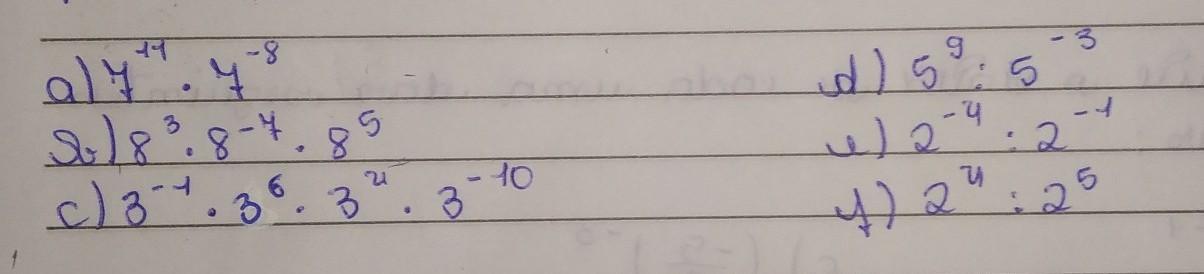 a) 7¹¹ . 7⁻⁸
b) 8³ . 8⁻⁷ . 8⁵
c) 3⁻¹ . 3⁶ . 3⁴ . 3⁻¹⁰
d) 5⁹ : 5⁻³
e) 2⁻⁴ : 2⁻¹
f) 2⁴ : 2⁵